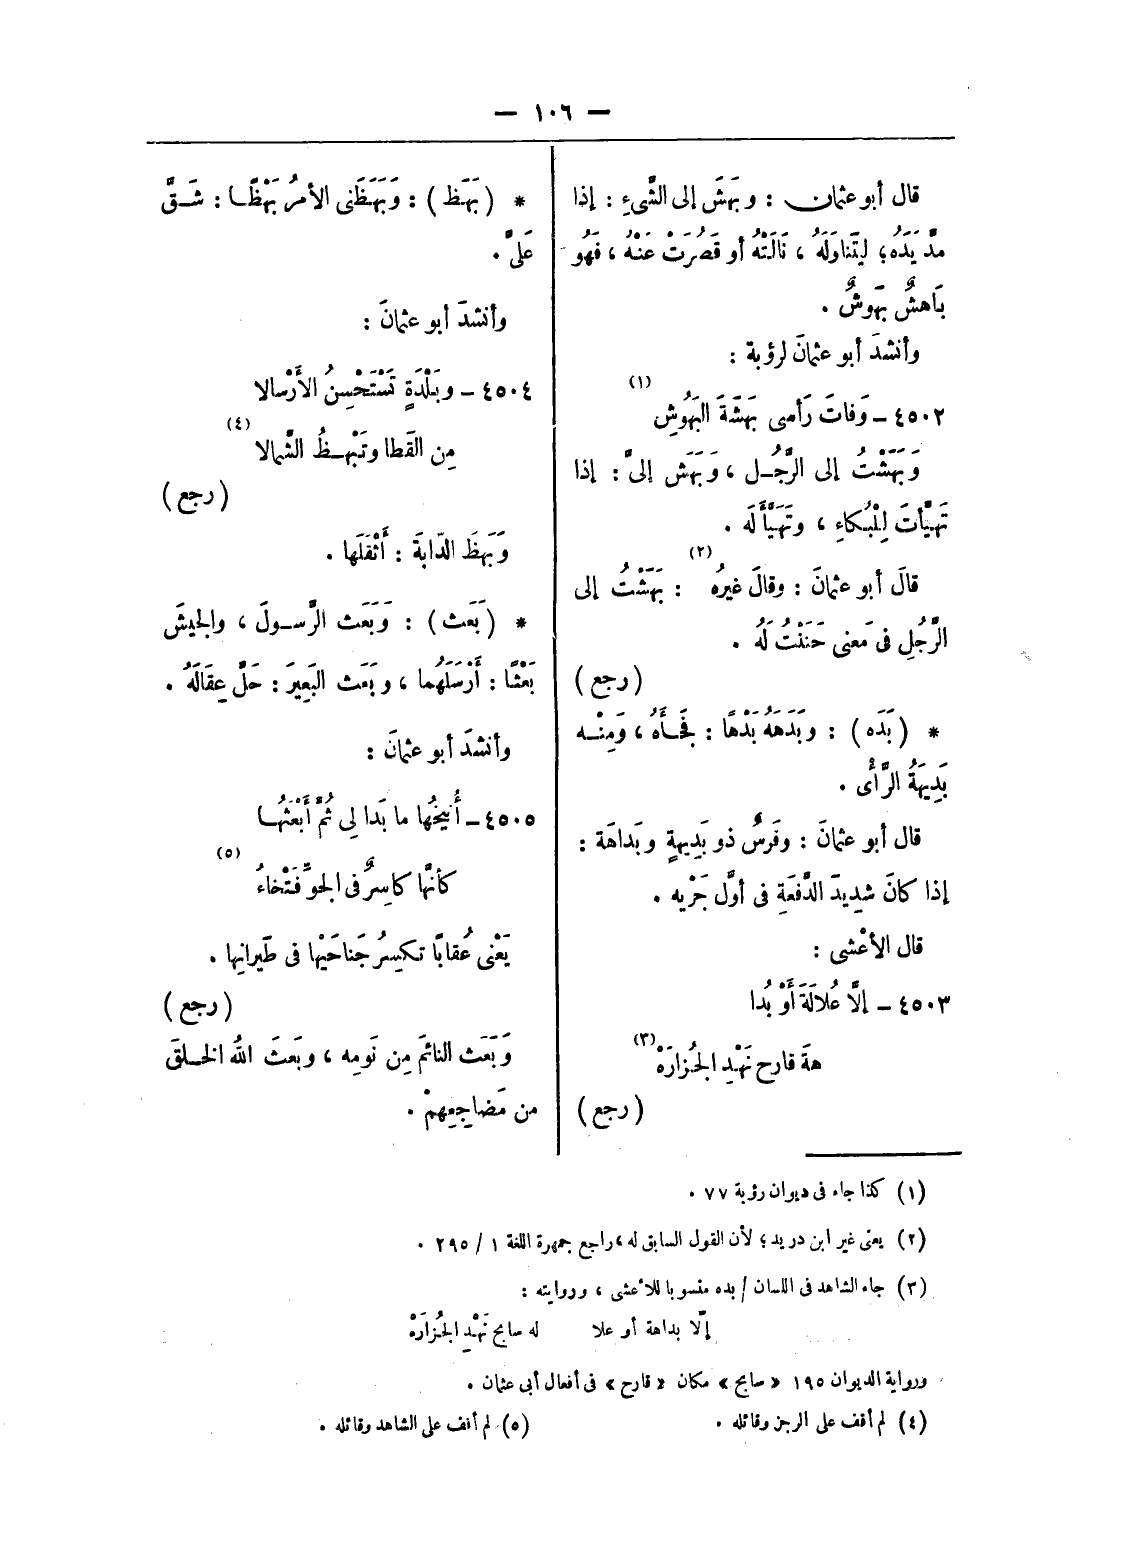 — ١٠٦ —
قال أبو عثمان : وبَهَشَ إلى الشَّىءِ : إذا
مدَّ يَدَه؛ ليتَناوَلَهُ ، نَالَتْهُ أو قَصُرَتْ عَنْهُ ، فَهُو
بَاهشٌ بَهوشٌ .
وأنشدَ أبو عثمانَ لرؤبة :
٤٥٠٢ – وَفاتَ رَأسى بَهشَةَ البَهُوشِ (١)
وَبَهَشْتُ إلى الرَّجُل ، وَبَهَش إلىَّ : إذا
تَهيَّأتَ لِلْبُكاءِ ، وتَهَيَّأَ لَه .
قالَ أبو عثمانَ : وقالَ غيرُه (٢) : بَهَشْتُ إلى
الرَّجُلِ فى مَعنى حَنَنْتُ لَهُ .
( رجع )
* ( بَدَه ) : وبَدَهَهُ بَدْهًا : فَجَأَهُ ، وَمِنْه
بَدِيهَةُ الرَّأْى .
قال أبو عثمانَ : وفَرسٌ ذو بَدِيهةٍ وبَداهَة :
إذا كانَ شدِيدَ الدَّفعَةِ فى أوَّل جَرْيه .
قال الأعْشى :
٤٥٠٣ – إلَّا عُلالَةَ أَوْ بُدا
هةَ قارح نَهْدِ الجُزارَهْ (٣)
( رجع )
* ( بَهَظ ) : وَبَهَظَنى الأمرُ بَهْظًا : شَقَّ
عَلىَّ .
وأنشدَ أبو عثمانَ :
٤٥٠٤ – وبَلْدَةٍ تَسْتَحْسِنُ الأَرْسالا
مِن القَطا وتَبْهَظُ الشَّمالا (٤)
( رجع )
وَبَهظَ الدَّابةَ : أَثْقَلَها .
* ( بَعَث ) : وَبَعَث الرَّسولَ ، والجيشَ
بَعْثًا : أَرْسَلَهُما ، وبَعَث البَعِيرَ : حَلَّ عِقَالَهُ .
وأنشدَ أبو عثمانَ :
٤٥٠٥ – أُنيخُها ما بَدا لِى ثُمَّ أَبْعَثُها
كأنَّها كاسِرٌ فى الجوِّ فَتْخاءُ (٥)
يَعْنى عُقابًا تكسِرُ جَناحَيْها فى طَيرانِها .
( رجع )
وَبَعَث النائمَ مِن نَومِه ، وبَعثَ اللهُ الخلقَ
من مَضاجِعِهمْ .
(١) كذا جاء فى ديوان رؤبة ٧٧ .
(٢) يعنى غير ابن دريد ؛ لأن القول السابق له ، راجع جمهرة اللغة ١ / ٢٩٥ .
(٣) جاء الشاهد فى اللسان / بده منسوبا للأعشى ، وروايته :
إلَّا بداهة أو علا له سابح نَهْدِ الجُزارَهْ
ورواية الديوان ١٩٥ « سابح » مكان « قارح » فى أفعال أبى عثمان .
(٤) لم أقف على الرجز وقائله . (٥) لم أقف على الشاهد وقائله .